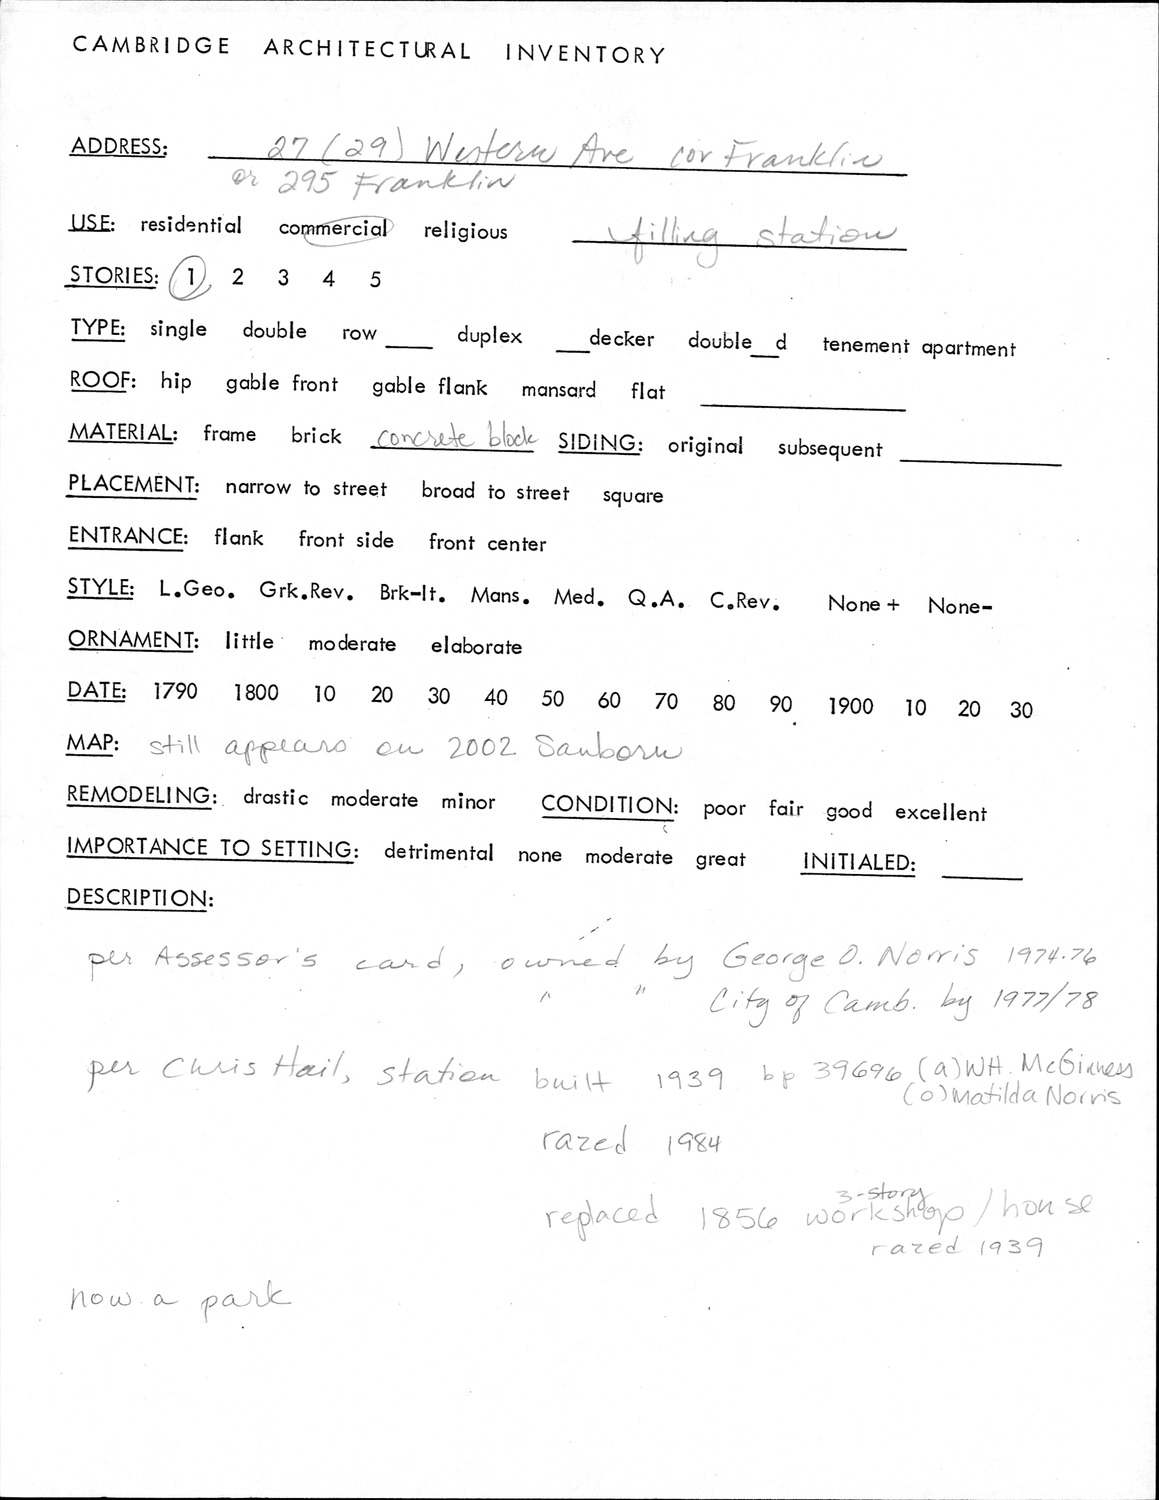 CAMBRIDGE ARCHITECTURAL INVENTORY
ADDRESS: 27 (29) Western Ave cor Franklin
or 295 Franklin
USE: residential commercial religious filling station
STORIES: 1 2 3 4 5
TYPE: single double row ____ duplex ___decker double__d tenement apartment
ROOF: hip gable front gable flank mansard flat ____
MATERIAL: frame brick concrete block SIDING: original subsequent ____
PLACEMENT: narrow to street broad to street square
ENTRANCE: flank front side front center
STYLE: L.Geo. Grk.Rev. Brk-It. Mans. Med. Q.A. C.Rev. None+ None-
ORNAMENT: little moderate elaborate
DATE: 1790 1800 10 20 30 40 50 60 70 80 90 1900 10 20 30
MAP: still appears on 2002 Sanborn
REMODELING: drastic moderate minor CONDITION: poor fair good excellent
IMPORTANCE TO SETTING: detrimental none moderate great INITIALED: ____
DESCRIPTION:
per Assessor's card, owned by George O. Norris 1974-76
" " City of Camb. by 1977/78
per Chris Hail, station built 1939 bp 39696 (a) WH. McGinness
(o) Matilda Norris
razed 1984
3-story
replaced 1856 workshop/house
razed 1939
now a park